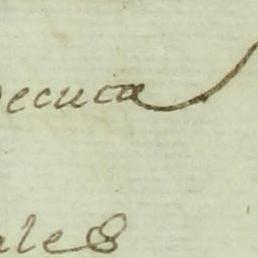 ecuca
ales